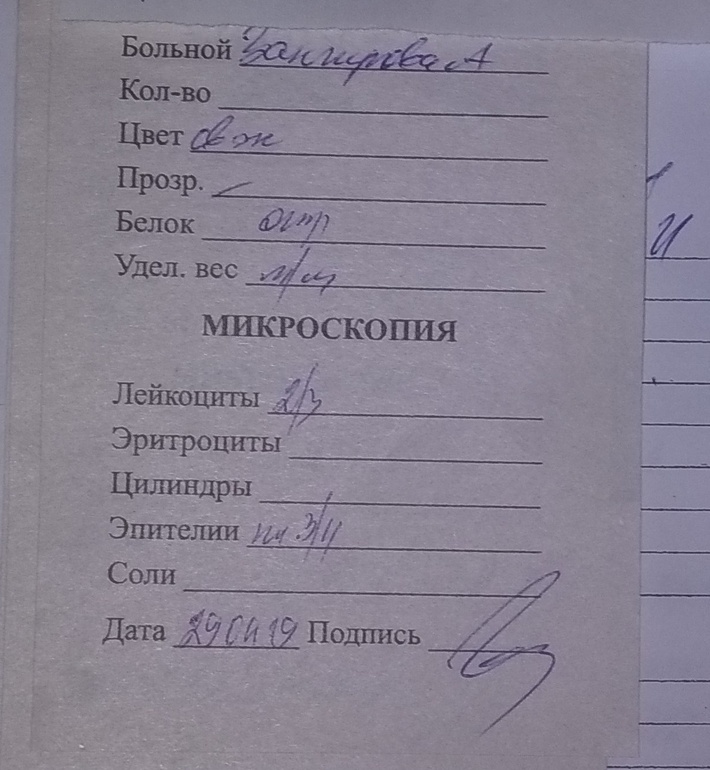 Больной Зангирова А
Кол-во
Цвет св ж
Прозр.
Белок отр
Удел. вес м/м
МИКРОСКОПИЯ
Лейкоциты 2/3
Эритроциты
Цилиндры
Эпителии пл 3/4
Соли
Дата 29 04 19 Подпись